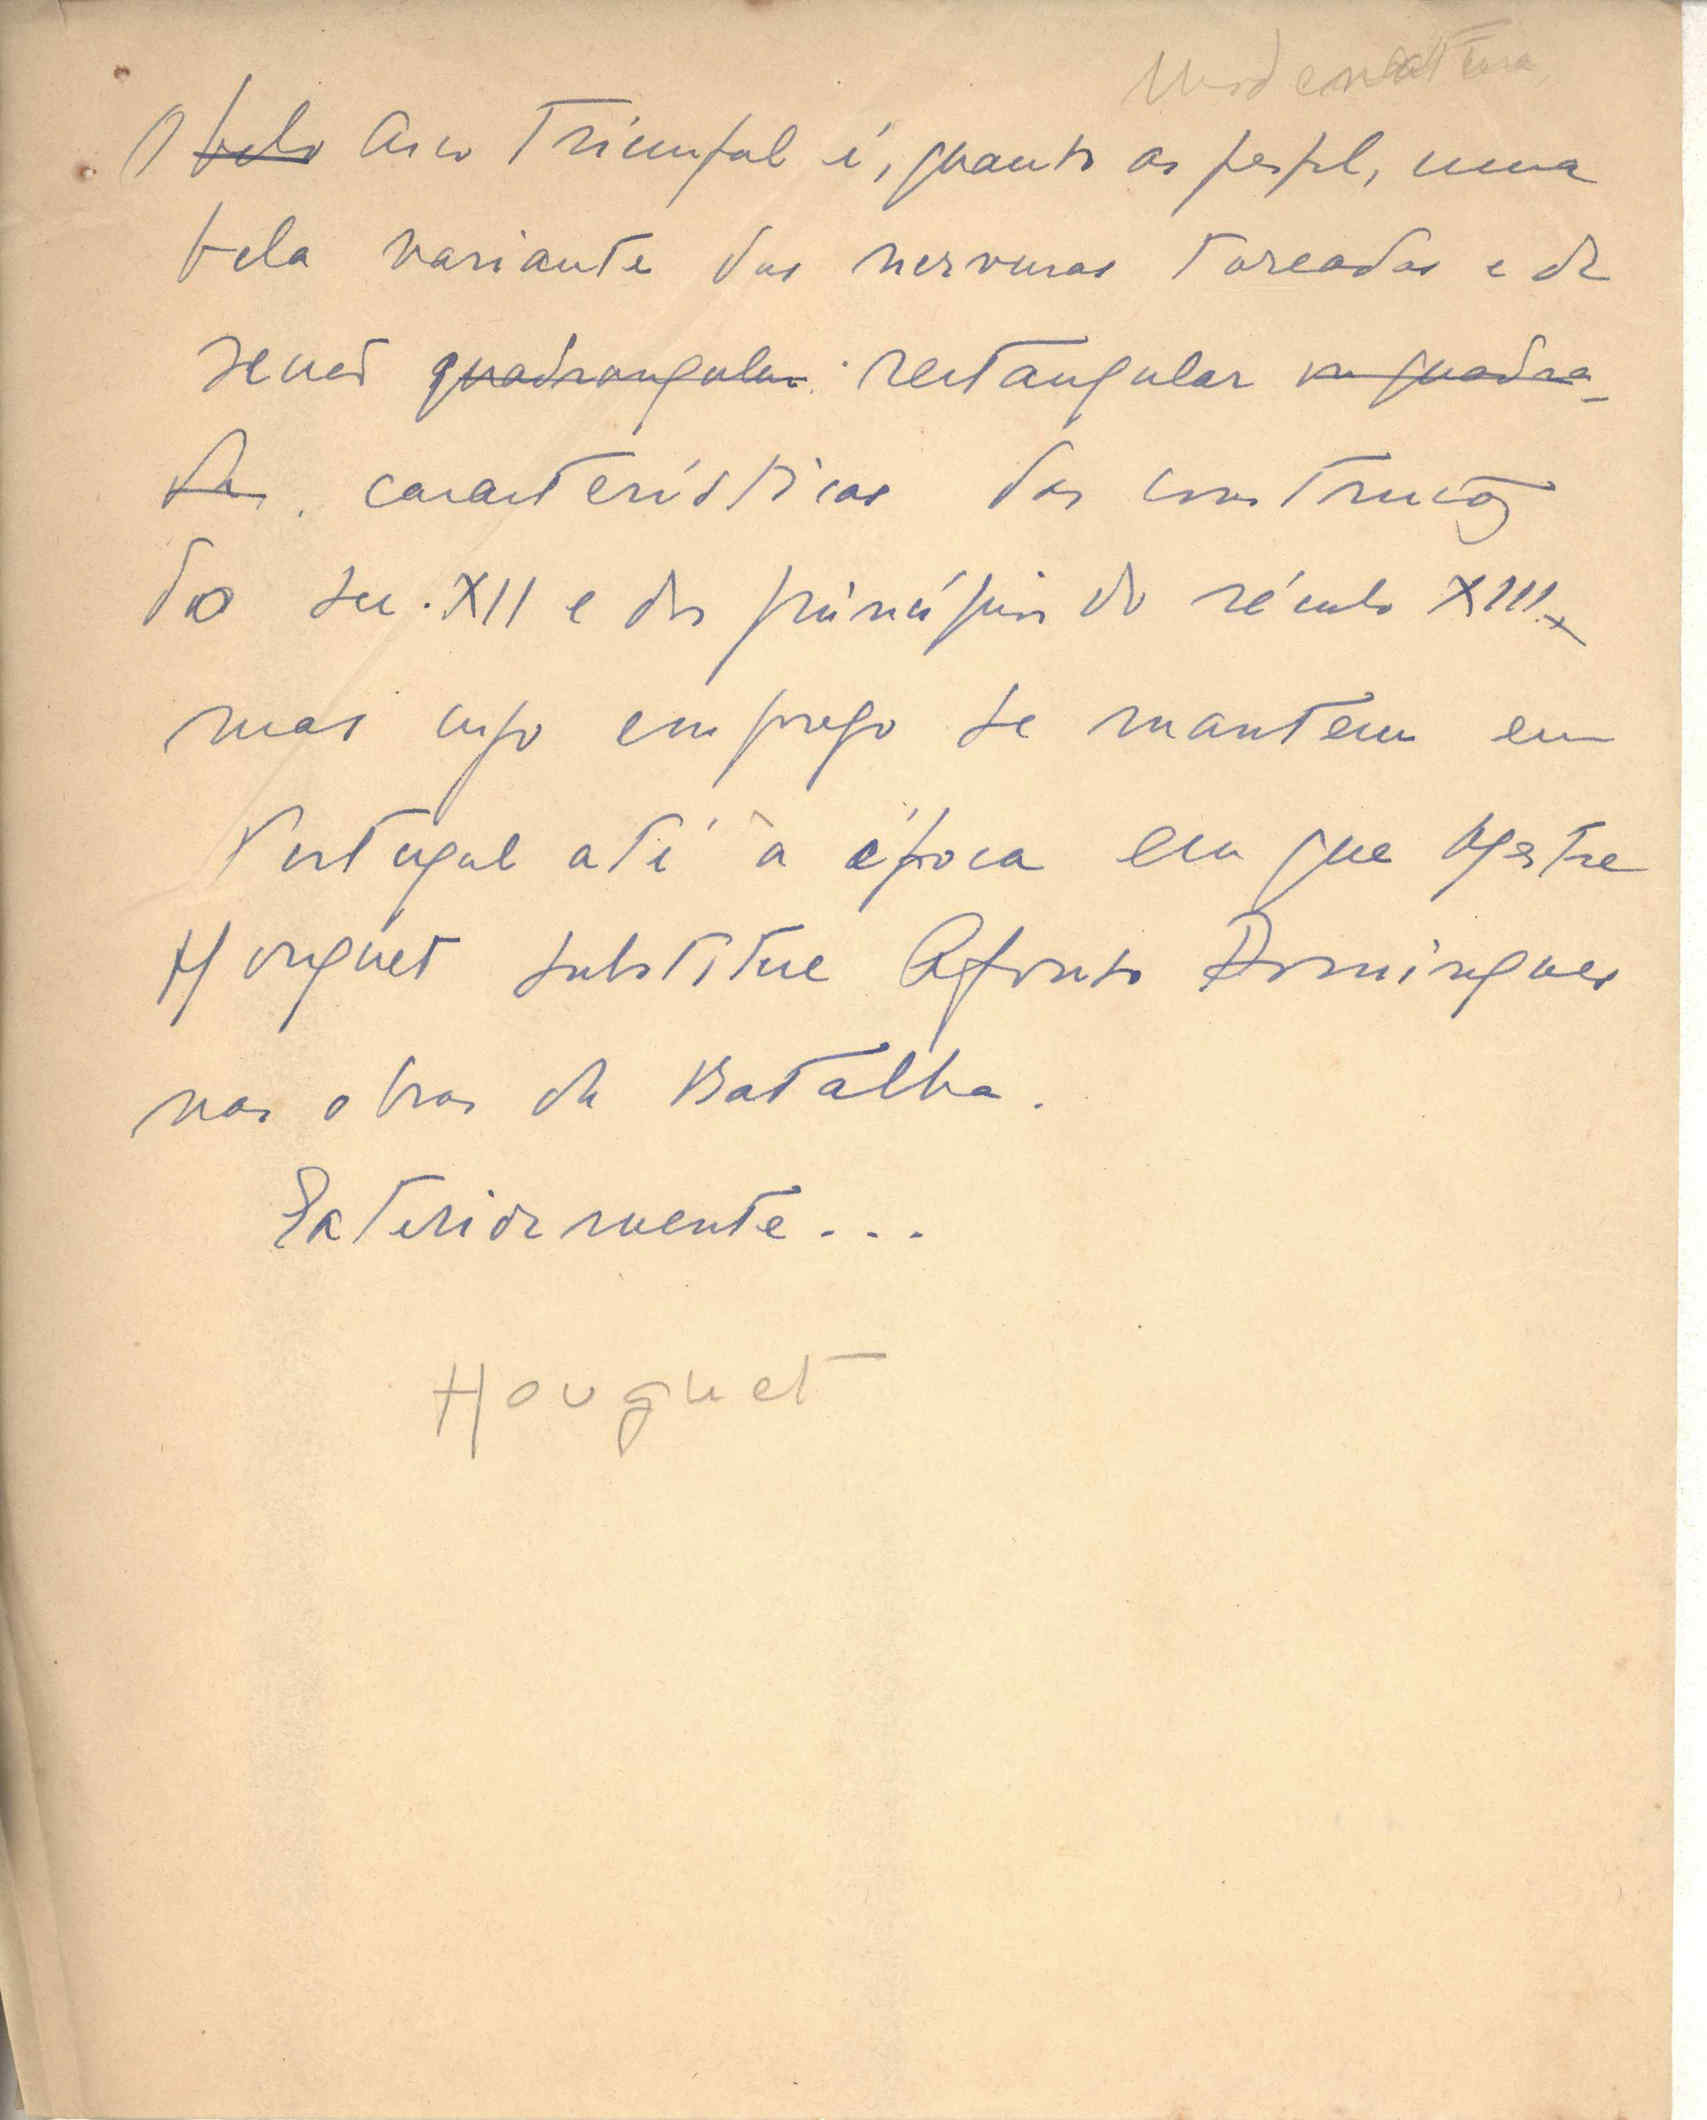 Modenatura
O belo Arco Triunfal é, quanto ao perfil, uma
bela variante das nervuras toreadas e de
rectangular ou quadra-
das. características das construções
do sec. XII e dos princípios do século XIII
mas cujo emprego se mantem em
Portugal até à época em que Mestre
Houguet substitue Afonso Domingues
nas obras da Batalha.
Exteriormente...
Houguet